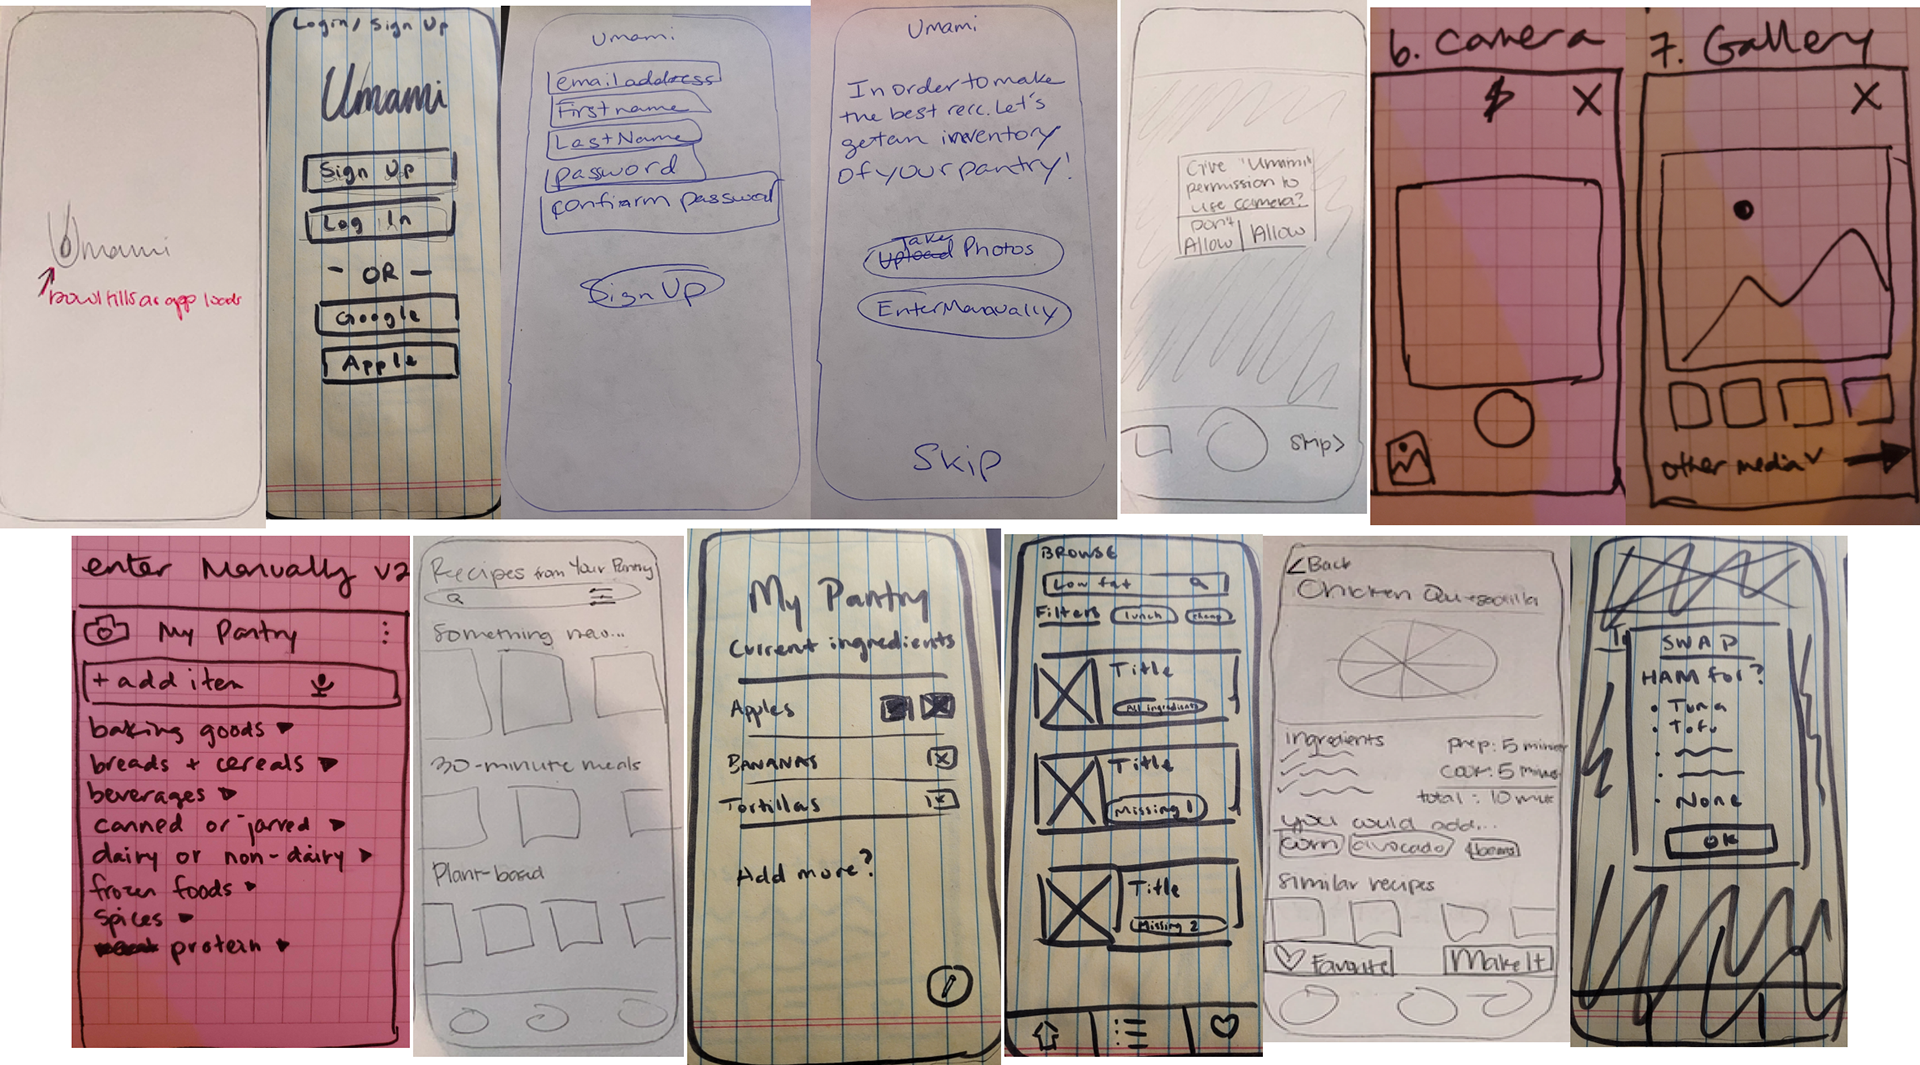 Umami
bowl fills as app loads
Login/Sign Up
Umami
Sign Up
Log In
- OR -
Google
Apple
Umami
email address
First name
Last Name
password
confirm password
Sign Up
Umami
In order to make
the best recc. Let's
get an inventory
of your pantry!
Take
Upload Photos
Enter Manually
Skip
Give "Umami"
permission to
use camera?
Don't
Allow
Allow
Skip>
6. Camera
7. Gallery
other media
enter Manually v2
My Pantry
+ add item
baking goods
breads + cereals
beverages
canned or jarred
dairy or non-dairy
frozen foods
spices
protein
Recipes from Your Pantry
Something new...
30-minute meals
Plant-based
My Pantry
Current ingredients
Apples
BANANAS
Tortillas
Add more?
BROWSE
Low fat
Filters
lunch
cheap
Title
All ingredients
Title
Missing 1
Title
Missing 2
<Back
Chicken Quesadilla
ingredients
prep: 5 minutes
cook: 5 minutes
total: 10 min
you could add...
corn
avocado
Similar recipes
Favorite
Make It
SWAP
HAM for?
• Tuna
• Tofu
• None
OK